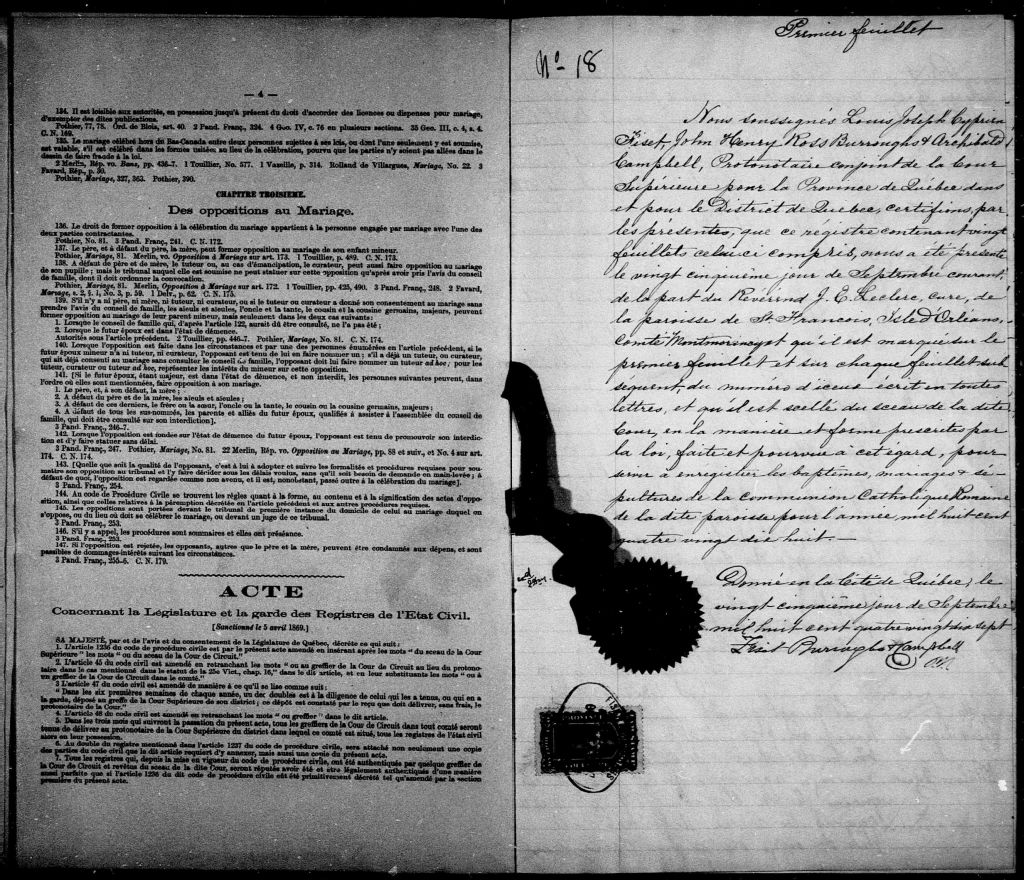 — 4 —
134. Il est loisible aux autorités, en possession jusqu'à présent du droit d'accorder des licences ou dispenses pour mariage,
d'exempter des dites publications.
Pothier, 77, 78. Ord. de Blois, art. 40. 2 Pand. Franç., 324. 4 Geo. IV, c. 76 en plusieurs sections. 35 Geo. III, c. 4, s. 4.
C. N. 169.
135. Le mariage célébré hors du Bas-Canada entre deux personnes sujettes à ses lois, ou dont l'une seulement y est soumise,
est valable, s'il est célébré dans les formes usitées au lieu de la célébration, pourvu que les parties n'y soient pas allées dans le
dessin de faire fraude à la loi.
2 Merlin, Rép. vo. Bans, pp. 436-7. 1 Touillier, No. 577. 1 Vazille, p. 314. Rolland de Villargues, Mariage, No. 22. 3
Favard, Rép., p.
Pothier, Mariage, 327, 363. Pothier, 390.
CHAPITRE TROISIEME.
Des oppositions au Mariage.
136. Le droit de former opposition à la célébration du mariage appartient à la personne engagée par mariage avec l'une des
deux parties contractantes.
Pothier, No. 81. 3 Pand. Franç., 241. C. N. 172.
137. Le père, et à défaut du père, la mère, peut former opposition au mariage de son enfant mineur.
Pothier, Mariage, 81. Merlin, vo. Opposition à Mariage sur art. 173. 1 Touillier, p. 489. C. N. 173.
138. A défaut de père et de mère, le tuteur ou, au cas d'émancipation, le curateur, peut aussi faire opposition au mariage
de son pupille; mais le tribunal auquel elle est soumise ne peut statuer sur cette opposition qu'après avoir pris l'avis du conseil
de famille, dont il doit ordonner la convocation.
Pothier, Mariage, 81. Merlin, Opposition à Mariage sur art. 172. 1 Touillier, pp. 425, 490. 3 Pand. Franç., 248. 2 Favard,
Mariage, s. 2, § 1, No. 3, p. 59. 1 Delv., p. 62. C. N. 175.
139. S'il n'y a ni père, ni mère, ni tuteur, ni curateur, ou si le tuteur ou curateur a donné son consentement au mariage sans
prendre l'avis du conseil de famille, les aïeuls et aïeules, l'oncle et la tante, le cousin et la cousine germains, majeurs, peuvent
former opposition au mariage de leur parent mineur, mais seulement dans les deux cas suivants:
1. Lorsque le conseil de famille qui, d'après l'article 122, aurait dû être consulté, ne l'a pas été;
2. Lorsque le futur époux est dans l'état de démence.
Autorités sous l'article précédent. 2 Touillier, pp. 446-7. Pothier, Mariage, No. 81. C. N. 174.
140. Lorsque l'opposition est faite dans les circonstances et par une des personnes énumérées en l'article précédent, si le
futur époux mineur n'a ni tuteur, ni curateur, l'opposant est tenu de lui en faire nommer un; s'il a déjà un tuteur, ou curateur,
qui ait déjà consenti au mariage sans consulter le conseil de famille, l'opposant doit lui faire nommer un tuteur ad hoc; pour les
tuteur, curateur ou tuteur ad hoc, représenter les intérêts du mineur sur cette opposition.
141. [Si le futur époux, étant majeur, est dans l'état de démence, et non interdit, les personnes suivantes peuvent, dans
l'ordre où elles sont mentionnées, faire opposition à son mariage.
1. Le père, et, à son défaut, la mère;
2. A défaut du père et de la mère, les aïeuls et aïeules;
3. A défaut de ces derniers, le frère ou la sœur, l'oncle ou la tante, le cousin ou la cousine germains, majeurs;
4. A défaut de tous les sus-nommés, les parents et alliés du futur époux, qualifiés à assister à l'assemblée du conseil de
famille, qui doit être consulté sur son interdiction].
3 Pand. Franç., 246-7.
142. Lorsque l'opposition est fondée sur l'état de démence du futur époux, l'opposant est tenu de promouvoir son interdic-
tion et d'y faire statuer sans délai.
3 Pand. Franç., 247. Pothier, Mariage, No. 81. 22 Merlin, Rép. vo. Opposition au Mariage, pp. 88 et suiv., et No. 4 sur art.
174. C. N. 174.
143. [Quelle que soit la qualité de l'opposant, c'est à lui à adopter et suivre les formalités et procédures requises pour sou-
mettre son opposition au tribunal et l'y faire décider sous les délais voulus, sans qu'il soit besoin de demande en main-levée; à
défaut de quoi, l'opposition est regardée comme non avenu, et il est, nonobstant, passé outre à la célébration du mariage].
3 Pand. Franç., 254.
144. Au code de Procédure Civile se trouvent les règles quant à la forme, au contenu et à la signification des actes d'oppo-
sition, ainsi que celles relatives à la péremption décrétée en l'article précédent et aux autres procédures requises.
145. Les oppositions sont portées devant le tribunal de première instance du domicile de celui au mariage duquel on
s'oppose, ou du lieu où doit se célébrer le mariage, ou devant un juge de ce tribunal.
3 Pand. Franç., 253.
146. S'il y a appel, les procédures sont sommaires et elles ont préséance.
3 Pand. Franç., 253.
147. Si l'opposition est rejetée, les opposants, autres que le père et la mère, peuvent être condamnés aux dépens, et sont
passibles de dommages-intérêts suivant les circonstances.
3 Pand. Franç., 255-6. C. N. 179.
ACTE
Concernant la Législature et la garde des Registres de l'Etat Civil.
[Sanctionné le 5 avril 1869.]
SA MAJESTÉ, par et de l'avis et du consentement de la Législature de Québec, décrète ce qui suit:
1. L'article 1236 du code de procédure civile est par le présent acte amendé en insérant après les mots "du sceau de la Cour
Supérieure" les mots "ou du sceau de la Cour de Circuit."
2. L'article 45 du code civil est amendé en retranchant les mots "ou au greffier de la Cour de Circuit au lieu du protono-
taire dans le cas mentionné dans le statut de la 25e Vict., chap. 16," dans le dit article, et en leur substituants les mots "ou à
un greffier de la Cour de Circuit dans le comté."
3 L'article 47 du code civil est amendé de manière à ce qu'il se lise comme suit;
"Dans les six premières semaines de chaque année, un des doubles est à la diligence de celui qui les a tenus, ou qui en a
la garde, déposé au greffe de la Cour Supérieure de son district; ce dépôt est constaté par le reçu que doit délivrer, sans frais, le
protonotaire de la Cour."
4. L'article 48 du code civil est amendé en retranchant les mots "ou greffier" dans le dit article.
5. Dans les trois mois qui suivront la passation du présent acte, tous les greffiers de la Cour de Circuit dans tout comté seront
tenus de délivrer au protonotaire de la Cour Supérieure du district dans lequel ce comté est situé, tous les registres de l'état civil
alors en leur possession.
6. Au double du registre mentionné dans l'article 1237 du code de procédure civile, sera attaché non seulement une copie
des parties du code civil que le dit article requiert d'y annexer, mais aussi une copie du présent acte.
7. Tous les registres qui, depuis la mise en vigueur du code de procédure civile, ont été authentiqués par quelque greffier de
la Cour de Circuit et revêtus du sceau de la dite Cour, seront réputés avoir été et être légalement authentiqués d'une manière
aussi parfaite que si l'article 1236 du dit code de procédure civile eût été primitivement décrété tel qu'amendé par la section
première du présent acte.
Premier feuillet
No 18
Nous soussignés Louis Joseph Cyprien
Fiset, John Henry Ross Burroughs & Archibald
Campbell, Protonotaire conjoint de la Cour
Supérieure pour la Province de Québec dans
et pour le District de Québec, certifions, par
les présentes, que ce registre contenant vingt
feuillets celui ci compris, nous a été présenté
le vingt cinquième jour de Septembre courant,
de la part du Révérend J. E. Leclerc, Curé, de
la paroisse de St François, Isle d'Orléans,
Comté Montmorency et qu'il est marqué sur le
premier feuillet et sur chaque feuillet sub
séquent, du numéro d'iceux écrit en toutes
lettres, et qu'il est scellé du sceau de la dite
Cour, en la manière et forme prescrites par
la loi, faite et pourvue à cet égard, pour
servir à enregistrer les baptêmes, mariages & sé-
pultures de la communion Catholique Romaine
de la dite paroisse pour l'année, mil huit cent
quatre vingt dix huit. —
Donné en la Cité de Québec, le
vingt cinquième jour de Septembre
mil huit cent quatre vingt dix sept
Fiset Burroughs & Campbell